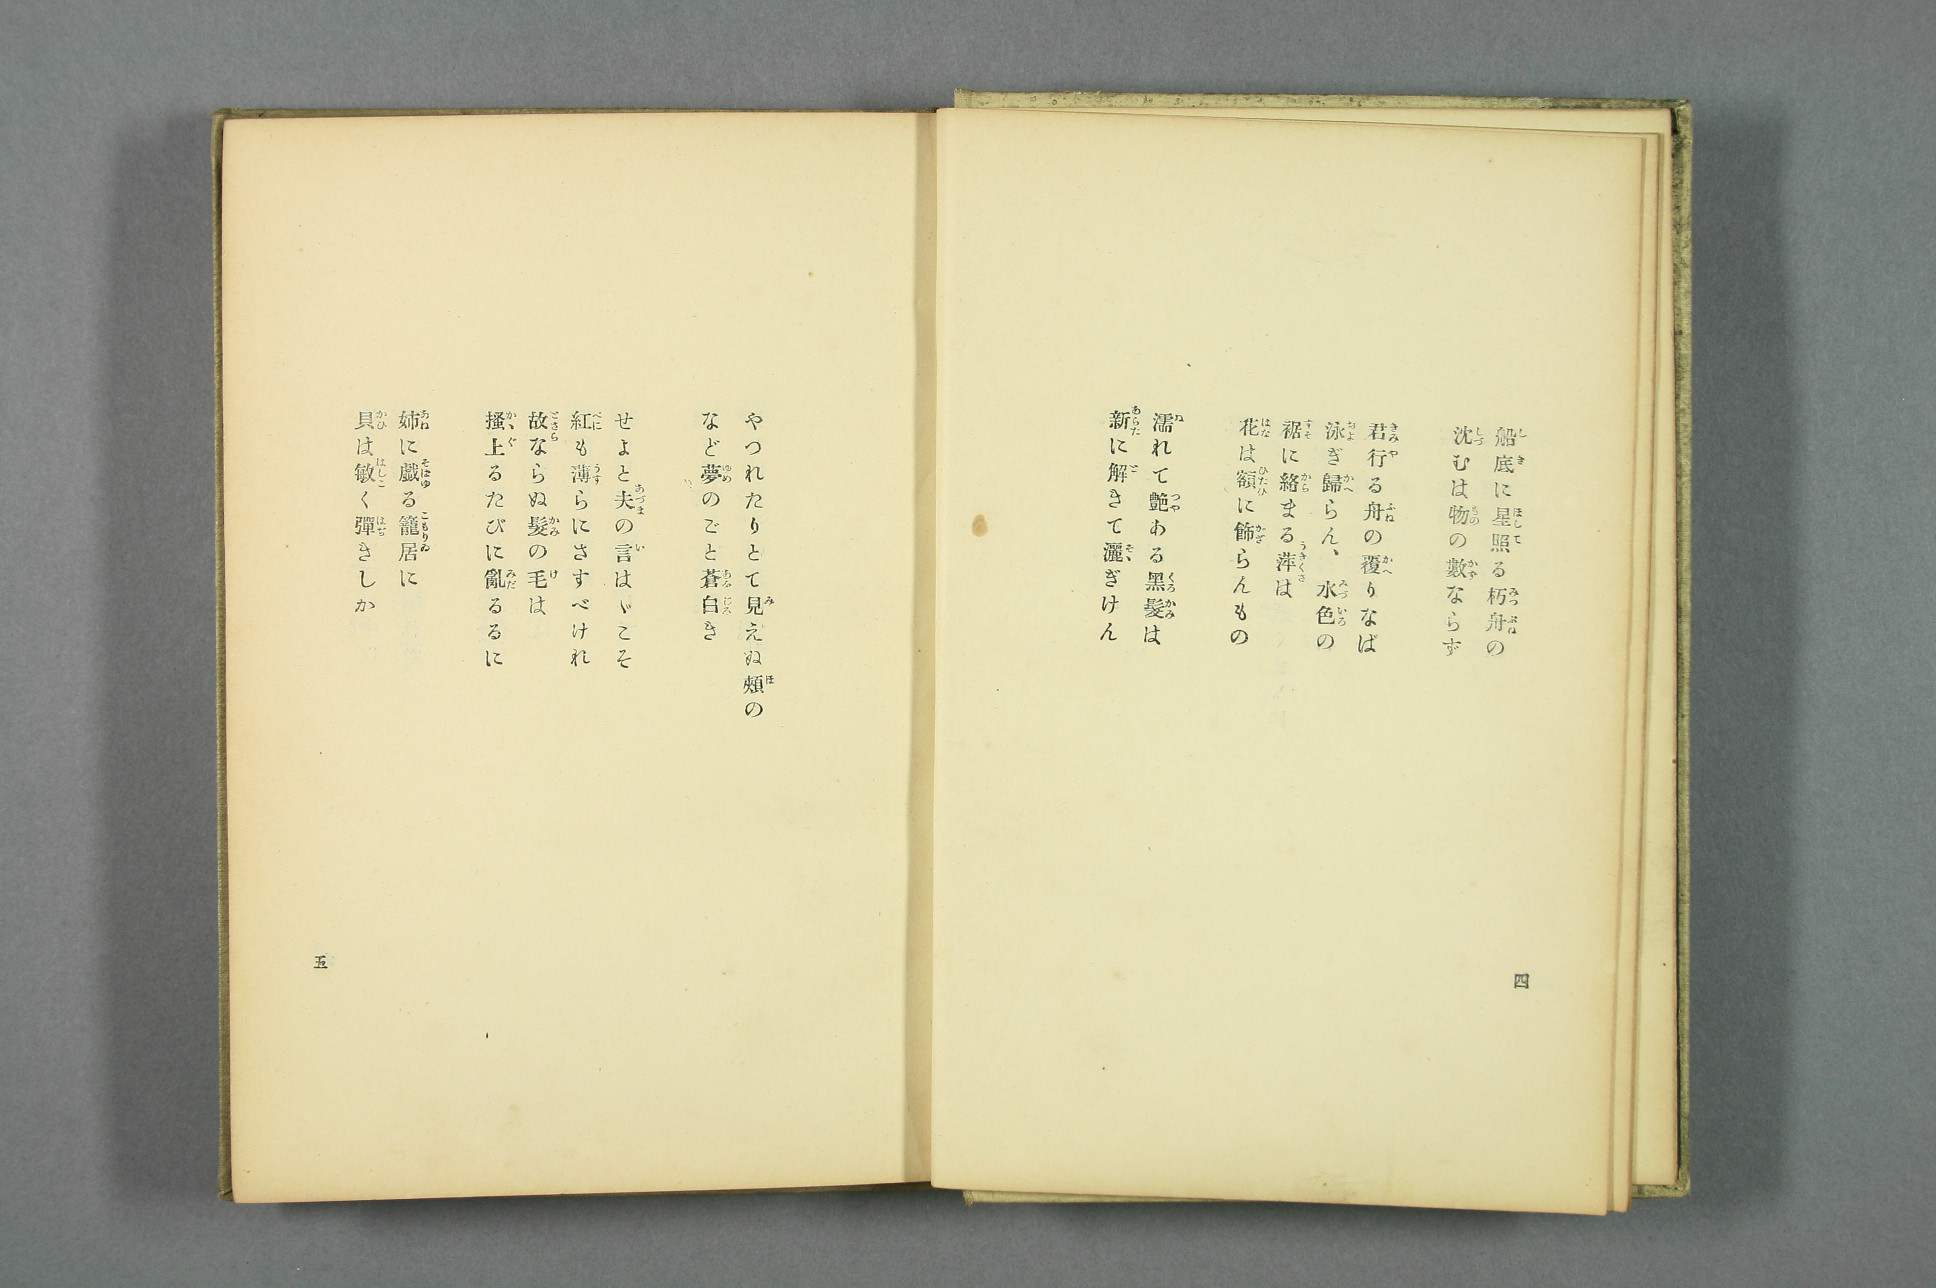 船底に星照る朽舟の
沈むは物の數ならず
君行る舟の覆りなば
泳ぎ歸らん、水色の
裾に絡まる萍は
花は額に飾らんもの
濡れて艶ある黑髮は
新に解きて灑ぎけん
四
やつれたりとて見えぬ頰の
など夢のごと蒼白き
せよと夫の言はゞこそ
紅も薄らにさすべけれ
故ならぬ髮の毛は
搔上るたびに亂るるに
姉に戲る籠居に
貝は敏く彈きしか
五